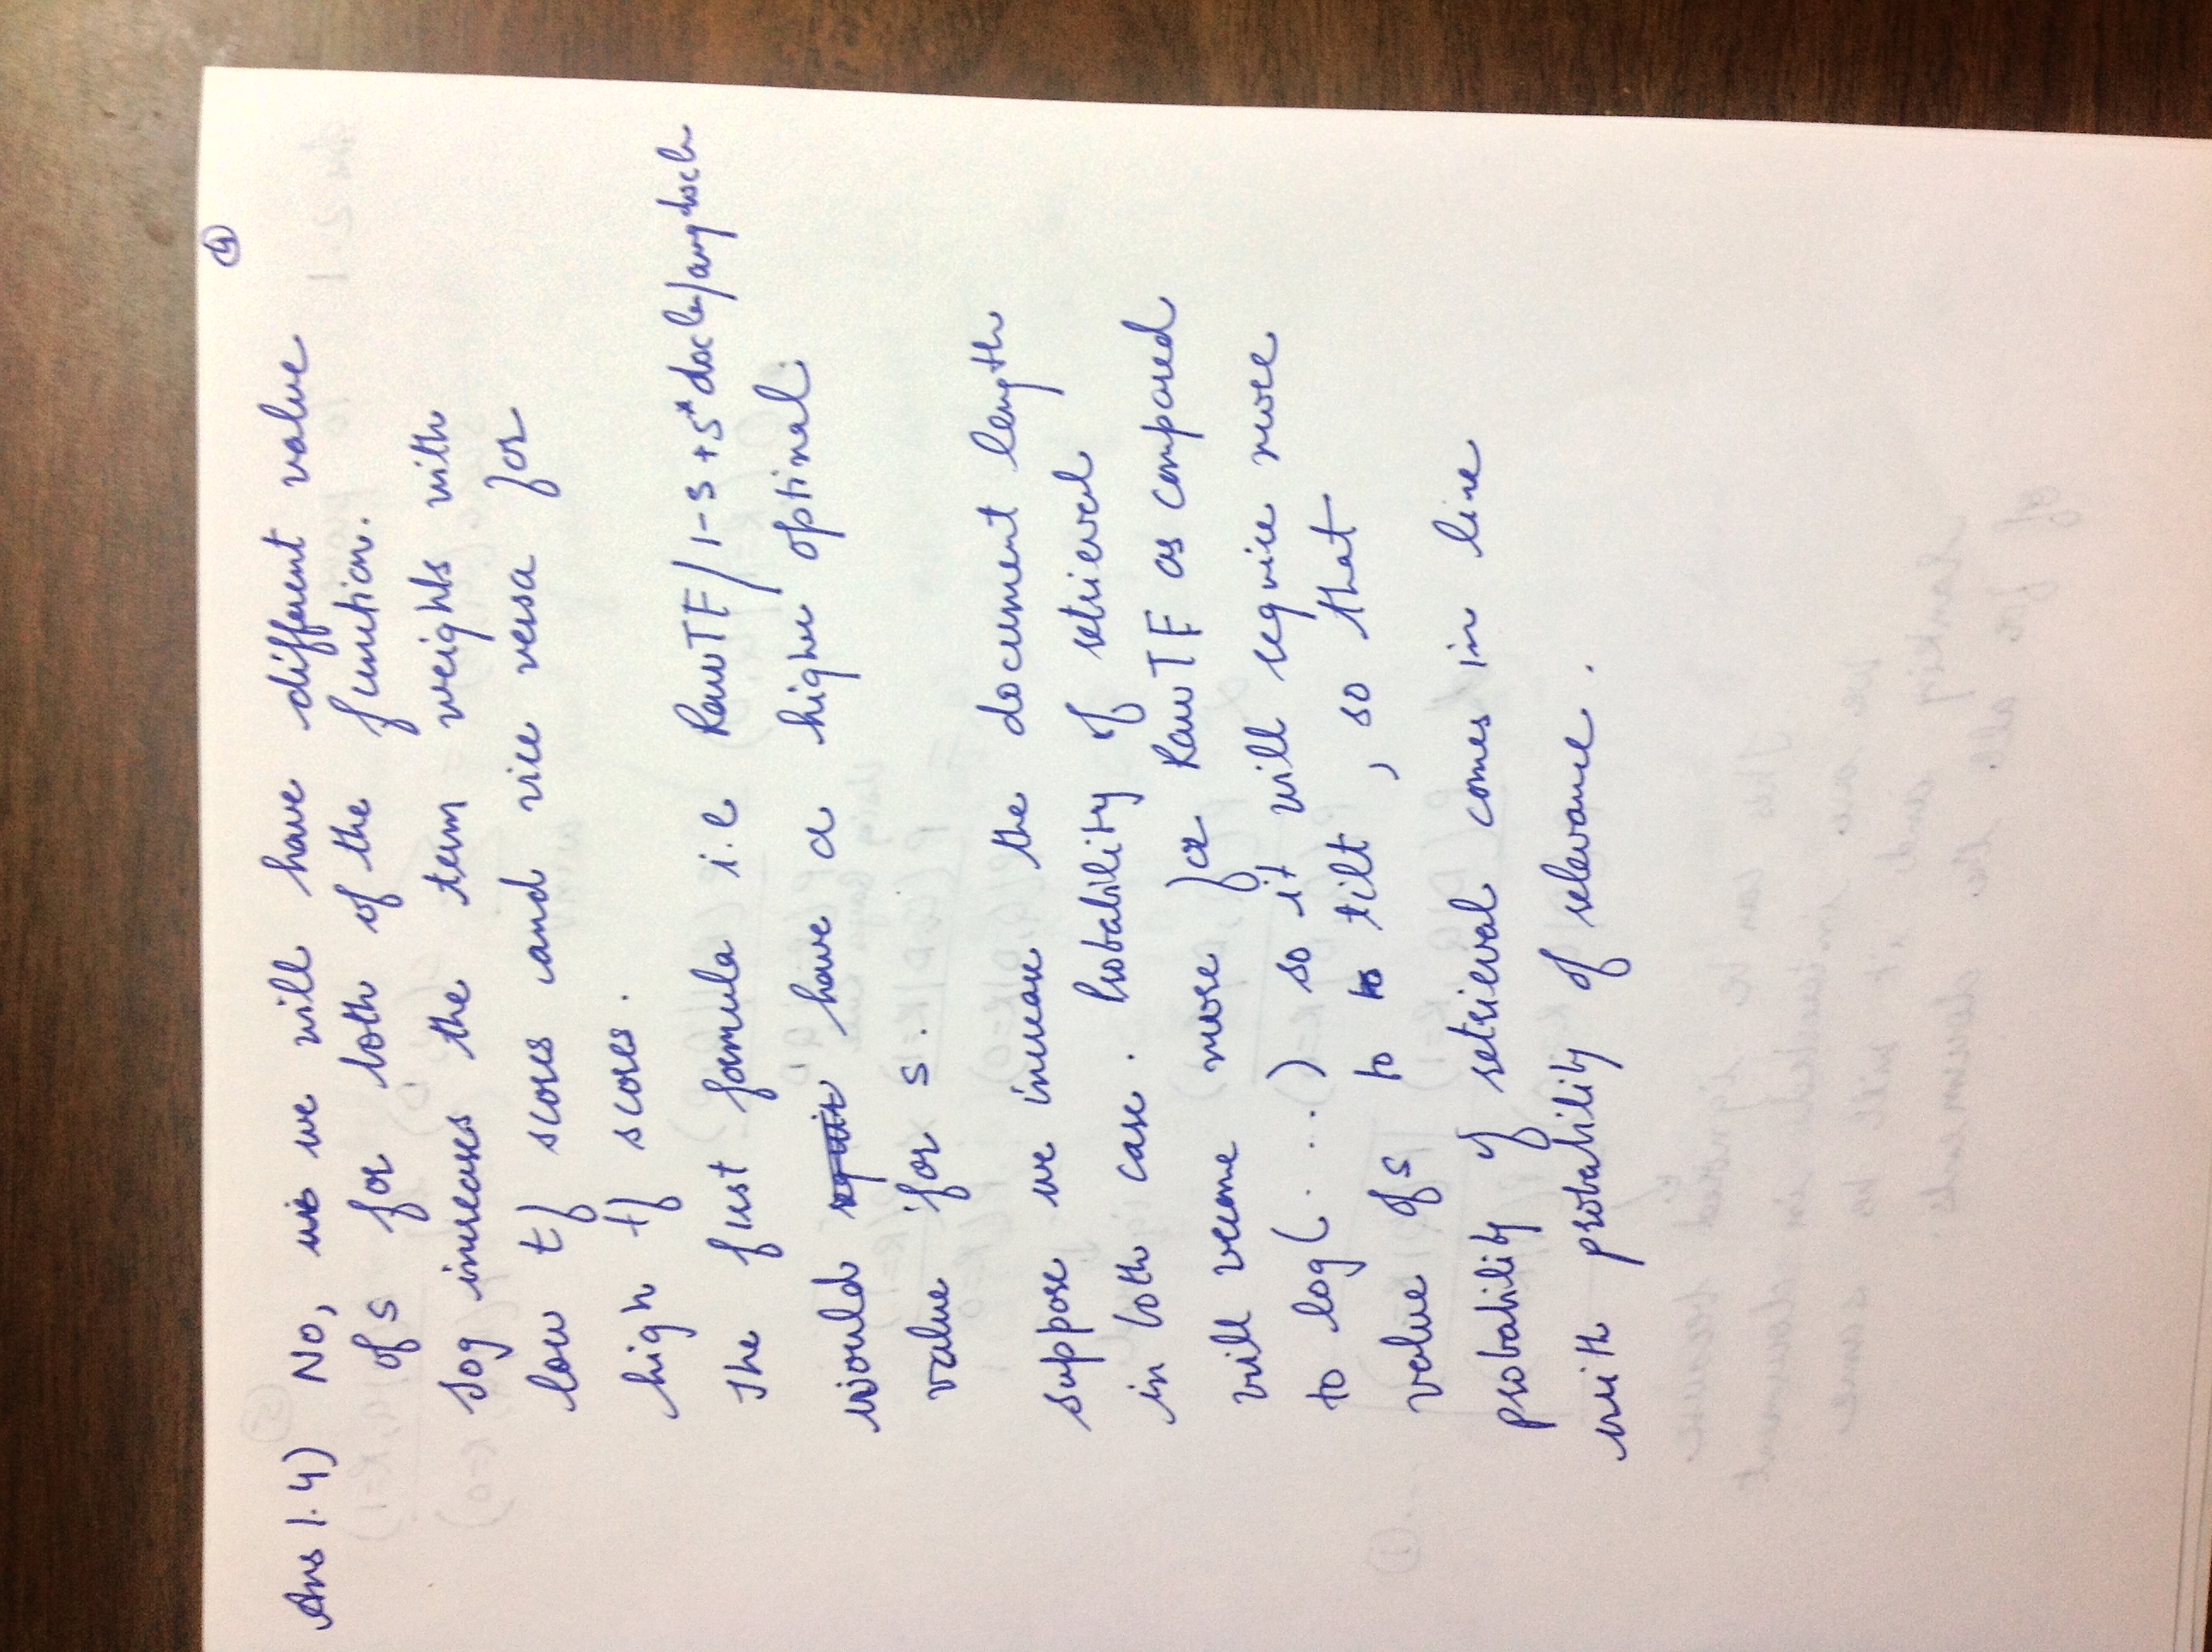 4
Ans 1.4) No, we will have different value
of s for both of the function.
Log increases the term weights with
low tf scores and vice versa for
high tf scores.
The first formula i.e RawTF/1-s+s*doclen/avgdocln
would requir have a higher optimal
value for s.
suppose we increase the document length
in both case. Probability of retrieval
will become more for RawTF as compared
to log(....) so it will require more
value of s to to tilt, so that
probability of retrieval comes in line
with probability of relevance.